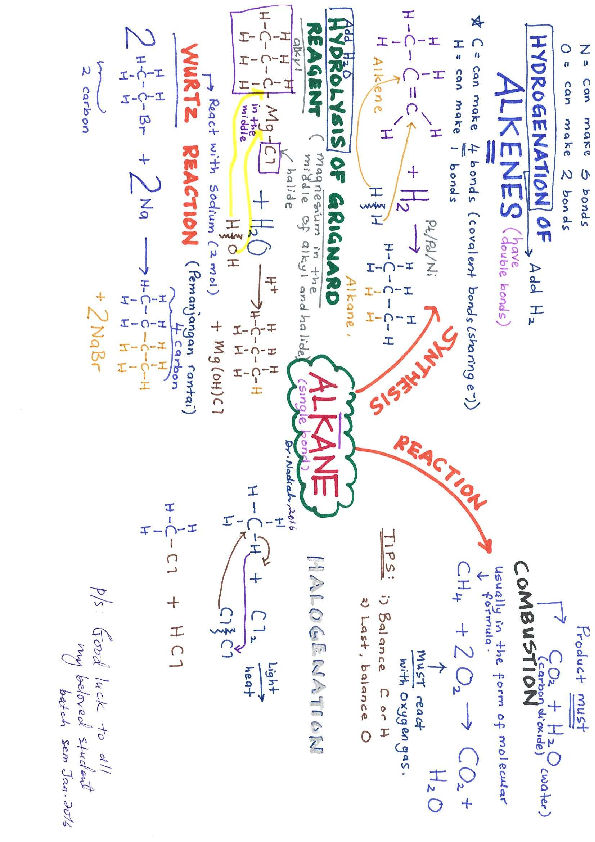 N = can make 3 bonds
O = can make 2 bonds
HYDROGENATION OF
Add H₂
ALKENES (have double bonds)
☆ C = can make 4 bonds (covalent bonds (sharing e⁻))
H = can make 1 bonds
H H H
H-C-C=C
H H
Alkene
+ H₂
H H
Pt/Pd/Ni
H H H
H-C-C-C-H
H H H
Alkane
SYNTHESIS
Add H₂O
HYDROLYSIS OF GRIGNARD
REAGENT (magnesium in the
middle of alkyl and halide)
alkyl
H H H
H-C-C-C-Mg-Cl
H H H
in the
middle
halide
+ H₂O
H OH
H⁺
H H H
H-C-C-C-H
H H H
+ Mg(OH)Cl
React with sodium (2 mol)
WURTZ REACTION (Pemanjangan rantai)
H H
2 H-C-C-Br + 2Na
H H
2 carbon
4 carbon
H H H H
H-C-C-C-C-H
H H H H
+ 2NaBr
ALKANE
(single bond)
Dr. Nadiah, 2016
REACTION
Product must
CO₂ + H₂O
(carbon dioxide) (water)
COMBUSTION
usually in the form of molecular
formula.
CH₄ + 2O₂ → CO₂ +
H₂O
MUST react
with oxygen gas.
TIPS: 1) Balance C or H
2) Last, balance O
HALOGENATION
H
H-C-H + Cl₂
H
Cl Cl
Light
heat
H
H-C-Cl + HCl
H
p/s Good luck to all
my beloved student
batch sem Jan. 2016